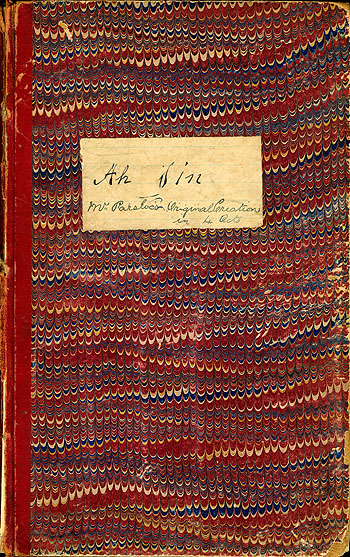 Ah Sin
Mr Parsloe's Original Creation
in 4 Acts